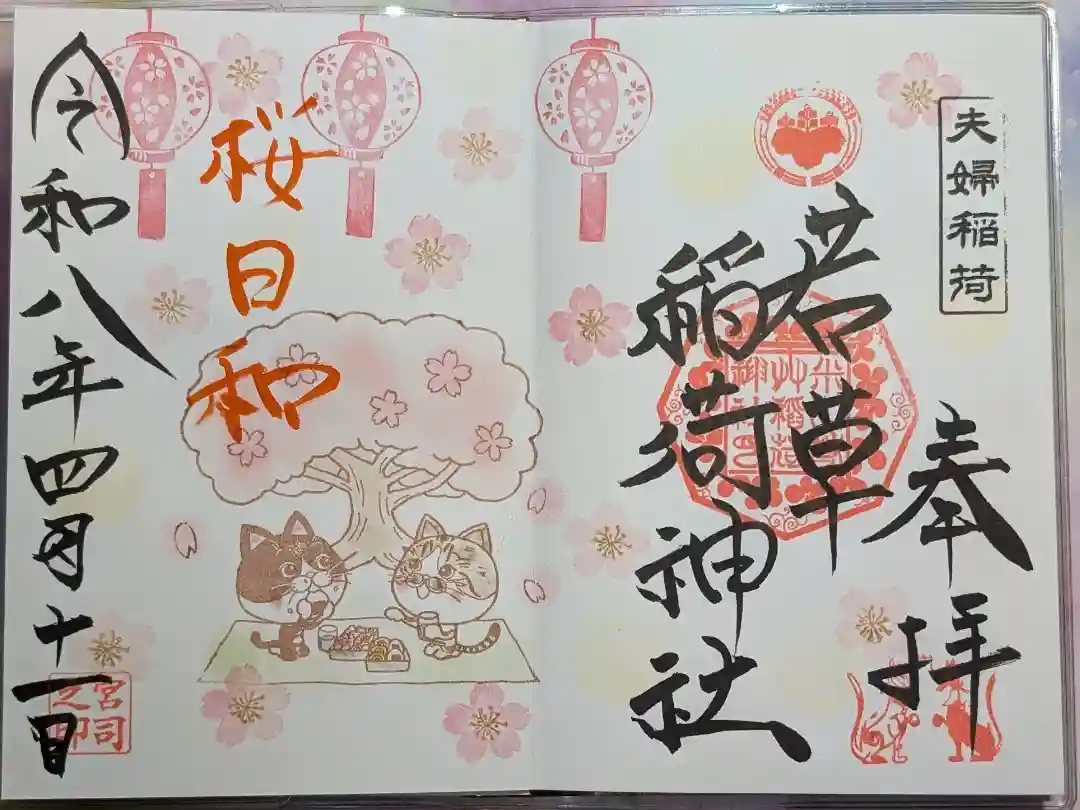 夫婦稲荷
奉拝
若草
稲荷神社
桜日和
令和八年四月十一日
宮司
之印